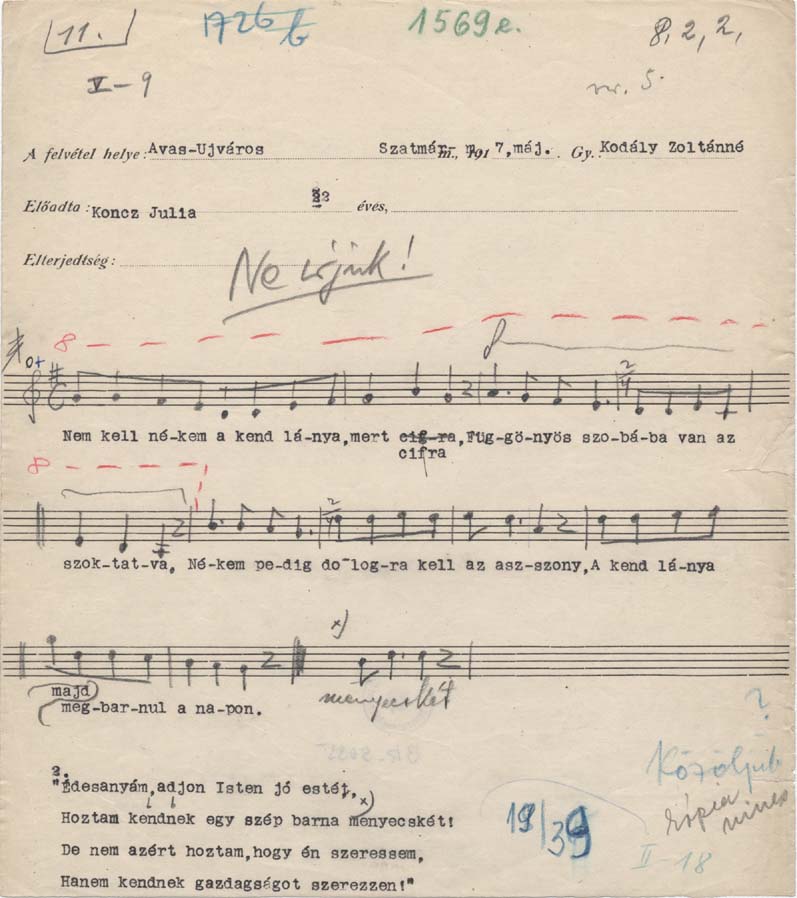 11. 1726/b 1569e. 8, 2, 2,
V-9 nr. 5.
A felvétel helye: Avas-Ujváros Szatmár- m., 1917, máj. Gy.: Kodály Zoltánné
Előadta: Koncz Julia 22 éves,
Elterjedtség:
Ne írjuk!
8
0+
2/4
Nem kell né-kem a kend lá-nya,mert cif-ra,Füg-gö-nyös szo-bá-ba van az
cifra
8
2/4
szok-tat-va, Né-kem pe-dig do-log-ra kell az asz-szony,A kend lá-nya
x)
majd
meg-bar-nul a na-pon. menyecskét
?
Közöljük
kópia
nincs
II-18
19/39
2.
"Édesanyám,adjon Isten jó estét,
Hoztam kendnek egy szép barna menyecskét! x)
De nem azért hoztam,hogy én szeressem,
Hanem kendnek gazdagságot szerezzen!"